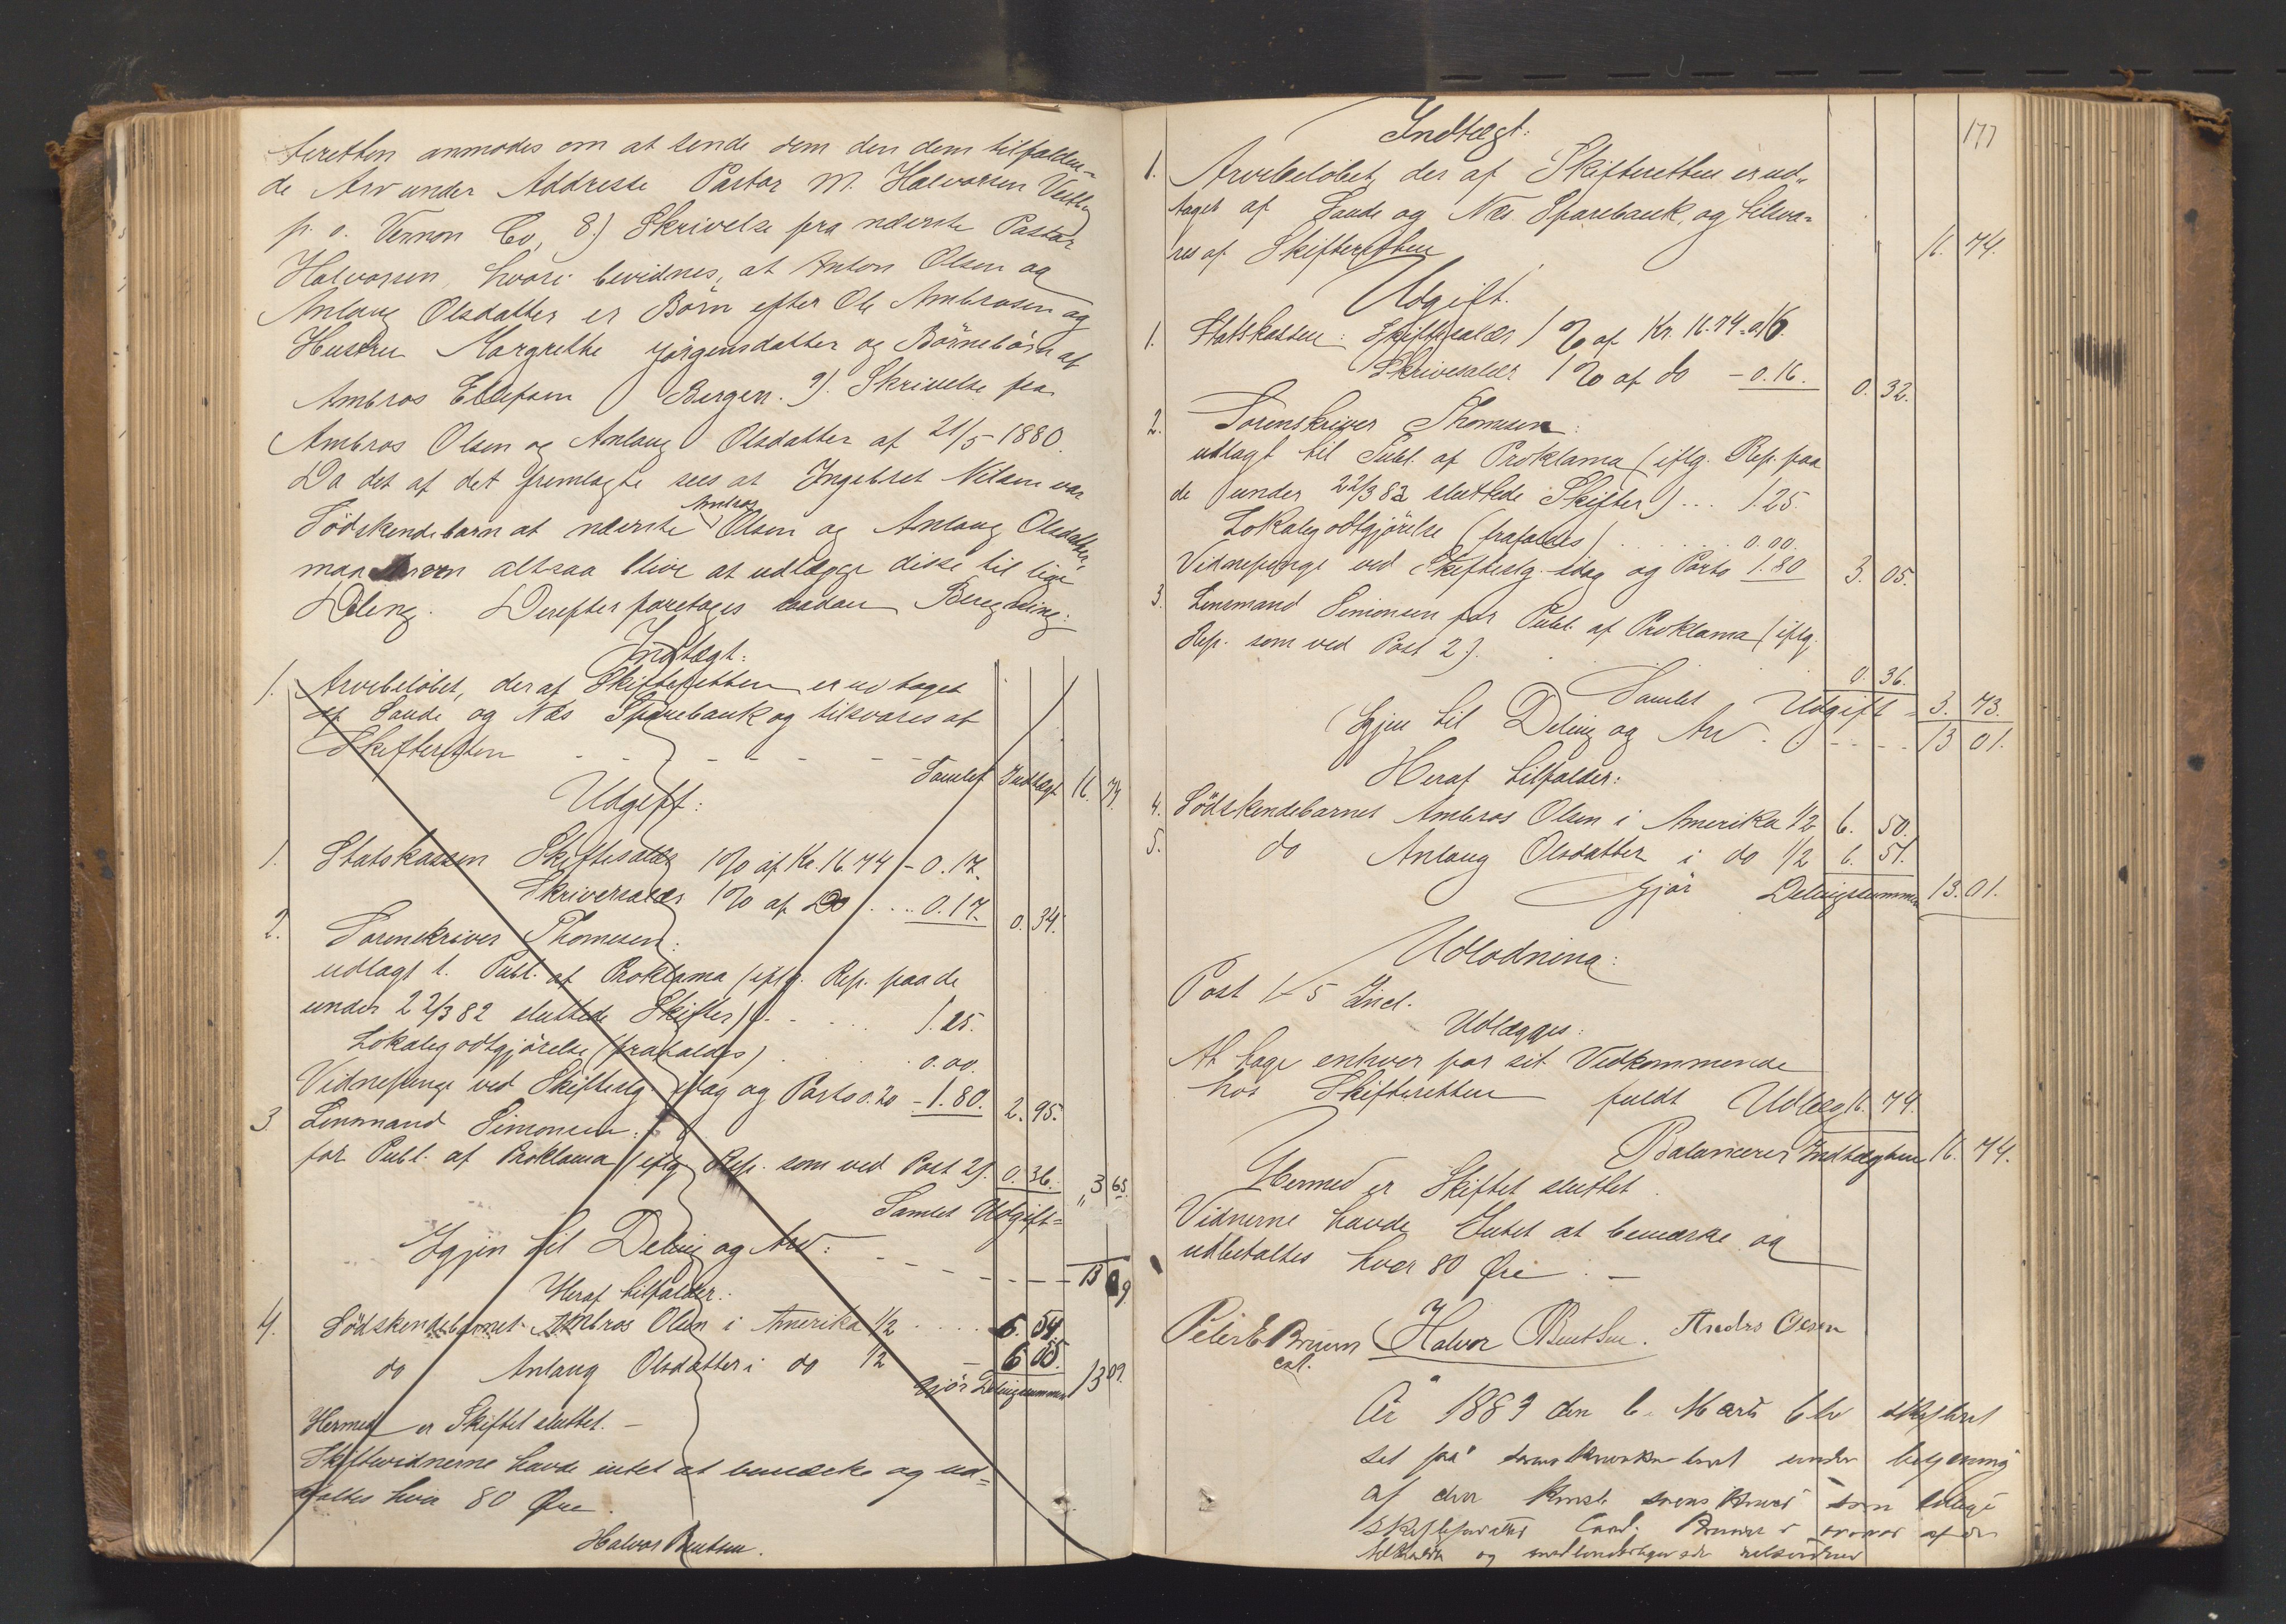 teretten anmodes om at sende dem den dem tilfalden-
de Arv under Addresse Pastor M. Halvorsen
p. o. Vernon Co, 8.) Skrivelse fra nævnte Pastor
Halvorsen, hvori bevidnes, at Anton Olsen og
Anlaug Olsdatter er Børn efter Ole Ambrosen og
Hustru Margrethe Jørgensdatter og Børnebørn af
Ambros Ellefsen Bergen. 9). Skrivelse fra
Ambros Olsen og Anlaug Olsdatter af 21/5 1880.
Da det af det fremlagte sees at Ingebret Nilsen var
Södskendebarn at nævnte Ambros Olsen og Anlaug Olsdatter,
maa Arven altsaa blive at udlægge disse til lige
Deling. Derefter foretages saadan Beregning:
Indtægt:
1. Arvebeløbet, der af Skifteretten er udtaget
af Saude og Næs Sparebank og tilsvares af
Skifteretten - - - - - -
Samlet Indtægt 16. 74.
Udgift:
1. Statskassen Skiftesalær 1% af Kr. 16.74 - 0.17.
Skriversalær 1% af Do .... 0.17. 0. 34.
2. Sorenskriver Thomesen:
udlagt t. Publ. af Proklama (iflg. Rep. paa de
under 22/3 82 sluttede Skifter) . . . . 1.25.
Lokalegodtgjörelse (frafaldes) . . . 0.00.
Vidnepenge ved Skifteslg. idag og Porto 0.20 - 1.80. 2. 95.
3 Lensmand Simonsen:
for Publ. af Proklama (iflg. Rep. som ved Post 2). 0. 36.
Samlet Udgift = " 3 65.
Igjen til Deling og Arv: - - - - - 13 09
Heraf tilfalder:
4. Södskendebarnet Ambros Olsen i Amerika 1/2 . . . . 6. 54.
do Anlaug Olsdatter i do 1/2 - 6 55.
Gjör Delingssummen 13 09.
Hermed er Skiftet sluttet. -
Skiftevidnerne havde intet at bemærke og ud=
betaltes hver 80 Øre.
Halvor Bentsen.
177
Indtægt:
1. Arvebelöbet, der af Skifteretten er ud-
taget af Saude og Næs Sparebank, og tilsva=
res af Skifteretten 16. 74.
Udgift.
1. Statskassen: Skiftesalær 1% af Kr. 16.74 - 0.16.
Skriversalær 1% af do - 0.16. 0. 32.
2. Sorenskriver Thomesen:
udlagt til Publ. af Proklama (iflg. Rep. paa
de under 22/3 82 sluttede Skifter) ... 1.25.
Lokalegodtgjörelse (frafaldes) . . . . . 0.00.
Vidnepenge ved Skifteslg. idag og Porto 1.80 3. 05.
3. Lensmand Simonsen for Publ. af Proklama (iflg.
Rep. som ved Post 2). . . . 0. 36.
Samlet Udgift = 3. 73.
Igjen til Deling og Arv. - - - - 13 01.
Heraf tilfalder:
4. Södskendebarnet Ambros Olsen i Amerika 1/2 6. 50.
5. do Anlaug Olsdatter i do 1/2 6. 51.
Gjör Delingssummen 13. 01.
Udlodning:
Post 1-5 Incl.
Udlægges:
At tage enhver for sit Vedkommende
hos Skifteretten fuldt Udlæg 16. 74.
Balancerer Indtægten 16. 74.
Hermed er Skiftet sluttet.
Vidnerne havde Intet at bemærke og
udbetaltes hver 80 Øre . -
Peter E Bruun Halvor Bentsen. Anders Olsen
cst.
År 1883 den 6. Marts blev skifteret
set på under betjening
af den Konst. som tillige
Cand.
og